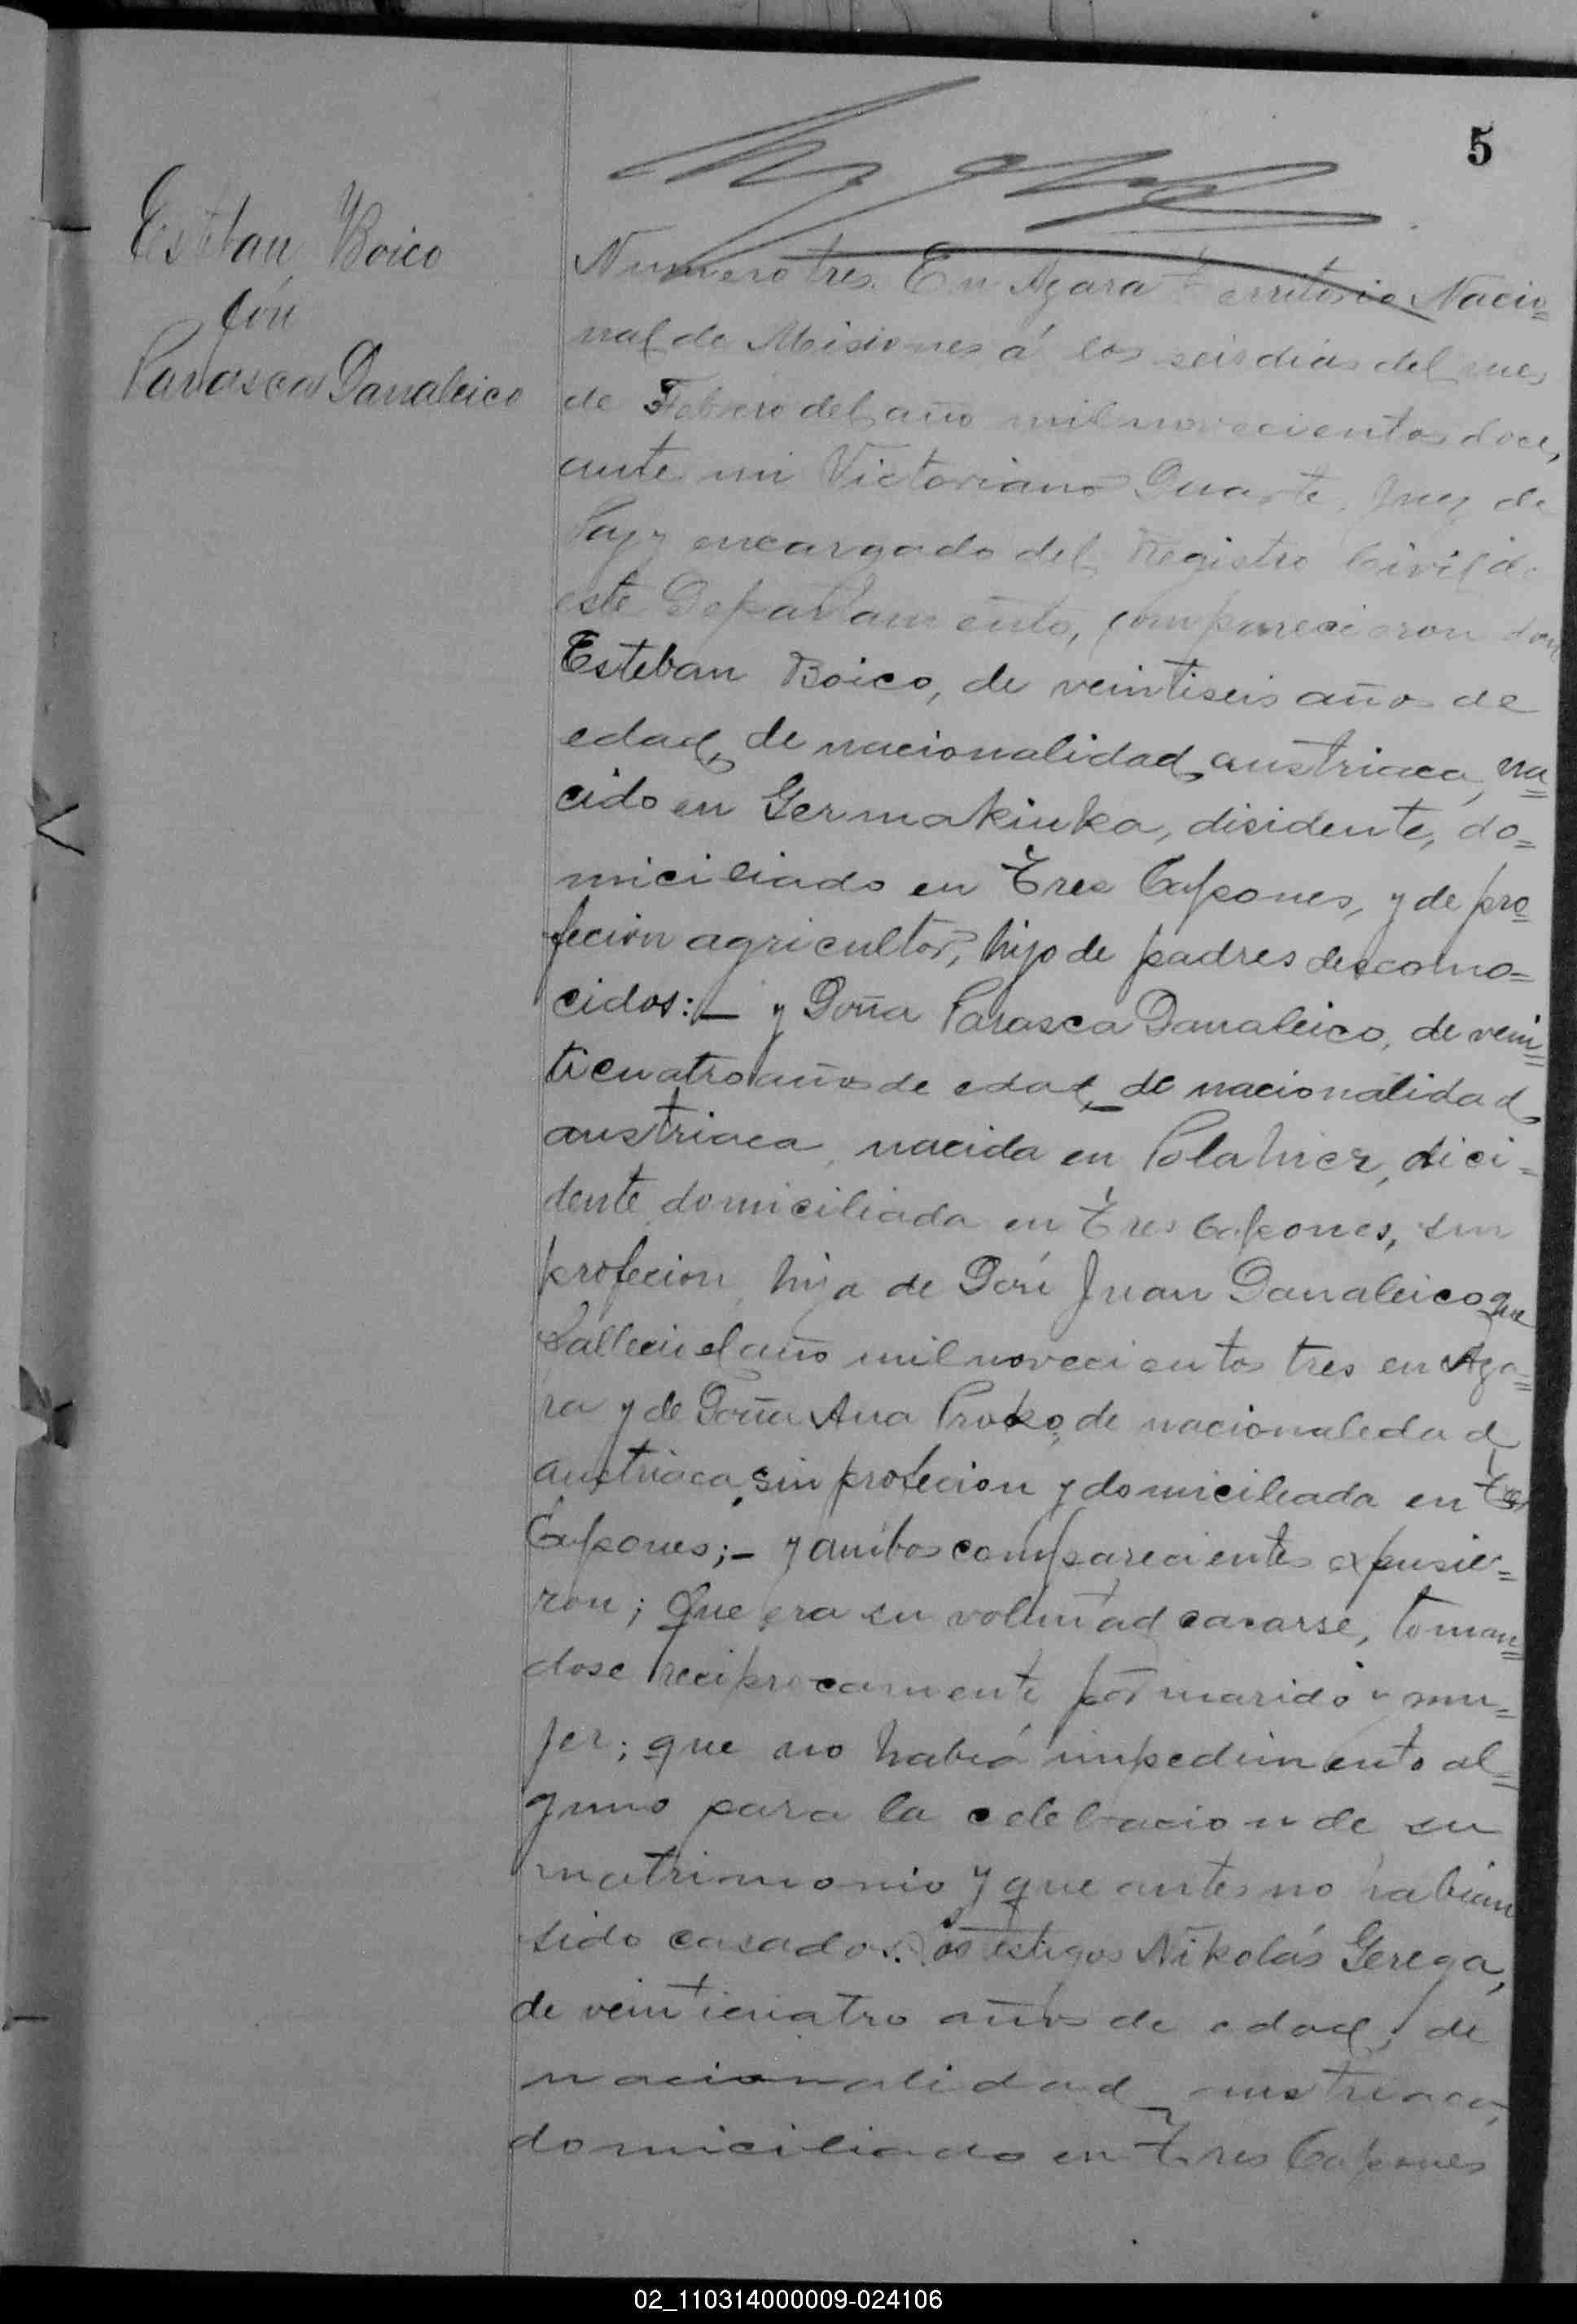 5
Esteban Boico
con
Parasca Danaleico
Numero tres. En Azara territorio Nacio=
nal de Misiones á los seis dias del mes
de Febrero del año mil novecientos doce,
ante mi Victoriano Duarte, Juez de
Paz y encargado del Registro Civil de
este Departamento, comparecieron don
Esteban Boico, de veintiseis años de
edad, de nacionalidad austriaca, na=
cido en Germakinka, disidente, do=
miciliado en Tres Capones, y de pro=
fecion agricultor, hijo de padres descono=
cidos:— y Doña Parasca Danaleico, de vein=
ticuatro años de edad, de nacionalidad
austriaca, nacida en Polahicz, dici=
dente, domiciliada en Tres Capones, sin
profecion, hija de Don Juan Danaleico que
fallecio el año mil novecientos tres en Aza=
ra y de Doña Ana Proko, de nacionaledad
austriaca, sin profecion y domiciliada en Tres
Capones;— y ambos comparecientes expusie=
ron; Que era su voluntad casarse, toman=
dose reciprocamente por marido y mu=
jer; que no habia impedimento al=
guno para la celebracion de su
matrimonio y que antes no habian
sido casados. Los testigos Nikolás Gerega,
de veinticuatro años de edad, de
nacionalidad austriaca,
domiciliado en Tres Capones
02_110314000009-024106